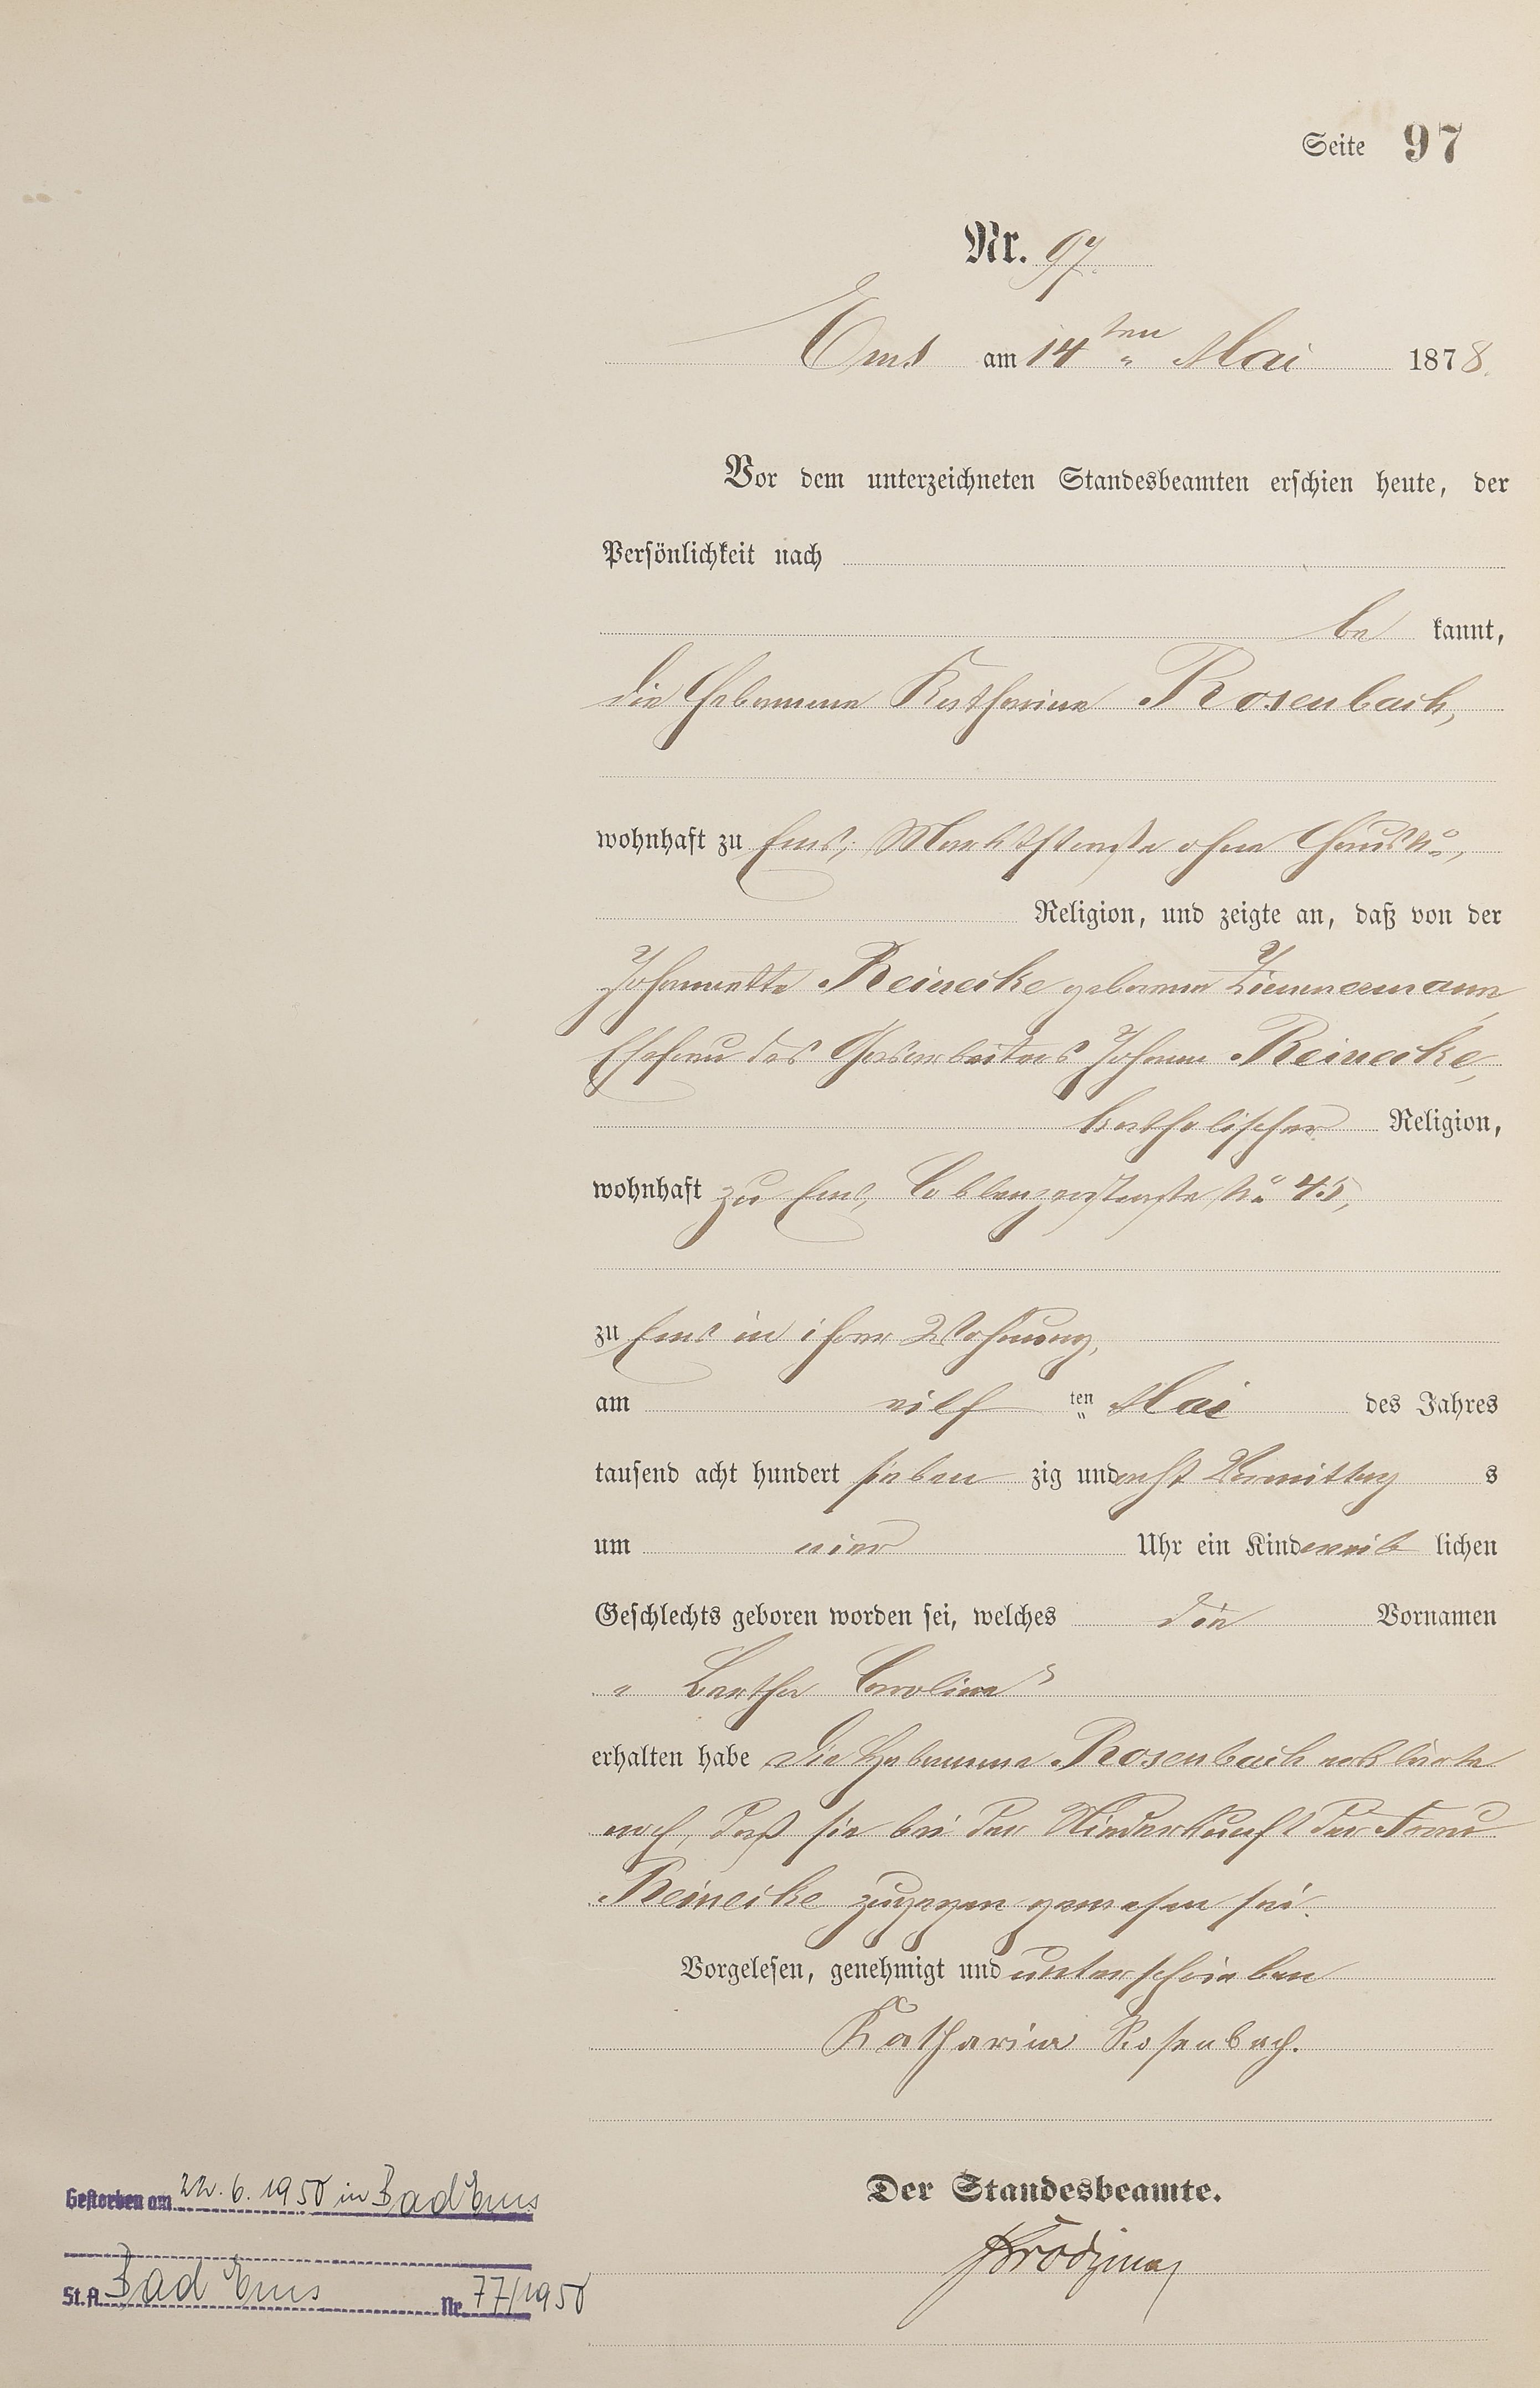 Seite 97
Nr. 97.
Ems am 14ten „ Mai 1878.
Vor dem unterzeichneten Standesbeamten erschien heute, der
Persönlichkeit nach
be kannt,
die Hebamme Katharina Rosenbach,
wohnhaft zu Ems, Marktstraße ohne Haus No,
Religion, und zeigte an, daß von der
Johannette Reinecke geborene Zimmermann,
Ehefrau des Gasarbeiters Johann Reinecke,
katholischer Religion,
wohnhaft zu Ems, Coblenzerstraße No 45,
zu Ems in ihrer Wohnung,
am eilf ten „ Mai des Jahres
tausend acht hundert sieben zig und acht Vormittag s
um vier Uhr ein Kind weib lichen
Geschlechts geboren worden sei, welches die Vornamen
„ Bertha Caroline “
erhalten habe Die Hebamme Rosenbach erklärte
noch, daß sie bei der Niederkunft der Frau
Reinecke zugegen gewesen sei.
Vorgelesen, genehmigt und unterschrieben
Katharina Rosenbach.
Der Standesbeamte.
Gestorben am 22.6.1950 in Bad Ems
St.A. Bad Ems Nr. 77/1950